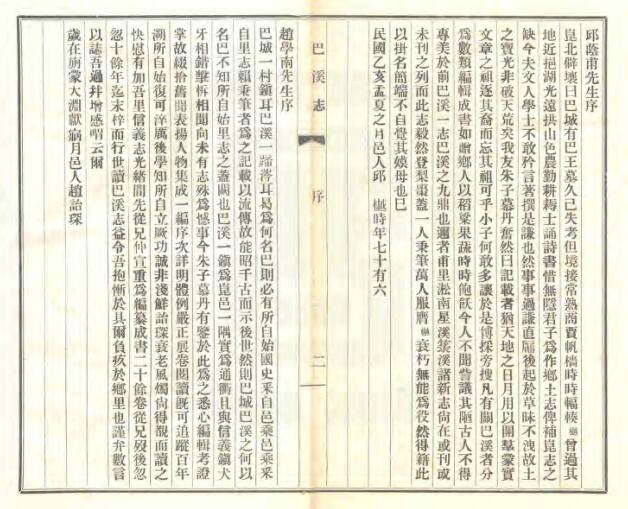 邱蔭甫先生序
崑北僻壤曰巴城有巴王墓久已失考但境接常熟商賈帆檣時時輻輳樾曾過其
地近挹湖光遠拱山色農勤耕耨士誦詩書惜無隱君子為作鄉土志俾補崑志之
缺今夫文人學士不敢矜言著撰是謙也然事事過謙直屬後起於草昧不洩故土
之寶光非破天荒矣我友朱子慕丹奮然曰記載者猶天地之日月用以開羣蒙實
文章之祖逐其裔而忘其祖可乎小子何敢多讓於是博採旁搜凡有關巴溪者分
為數類編輯成書如贈鄉人以稻粱果蔬時時飽飫今人不聞訾議其陋古人不得
專美於前巴溪一志巴溪之九鼎也邇者甫里淞南星溪菉溪諸新志尚在或刊或
未刊之列而此志毅然登梨棗蓋一人秉筆萬人服膺樾衰朽無能為役然得籍此
以掛名簡端不自覺其嫫母也巳
民國乙亥孟夏之月邑人邱樾時年七十有六
巴溪志
序
二
趙學南先生序
巴城一村鎮耳巴溪一蹄涔耳曷為何名巴則必有所自始國史釆自邑乘邑乘釆
自里志賴秉筆者為之記載以流傳故能昭千古而示後世然則巴城巴溪之何以
名巴不知所自始里志之蓋闕也巴溪一鎮為崑邑一隅實為通衢且與信義鎮犬
牙相錯擊柝相聞向未有志殊為憾事今朱子慕丹有鑒於此為之悉心編輯考證
掌故綴拾舊聞表揚人物集成一編序次詳明體例嚴正展卷閱讀既可追蹤百年
溯所自始復可淬厲後學知所自立厥功誠非淺鮮詒琛衰老風燭尚得覩而讀之
快慰有加吾里信義志光緒間先從兄仲宣重為編纂成書二十餘卷從兄歿後忽
忽十餘年迄未梓而行世讀巴溪志益令吾抱慚於具爾負疚於鄉里也謹弁數言
以誌吾過幷增感喟云爾
歲在旃蒙大淵獻病月邑人趙詒琛